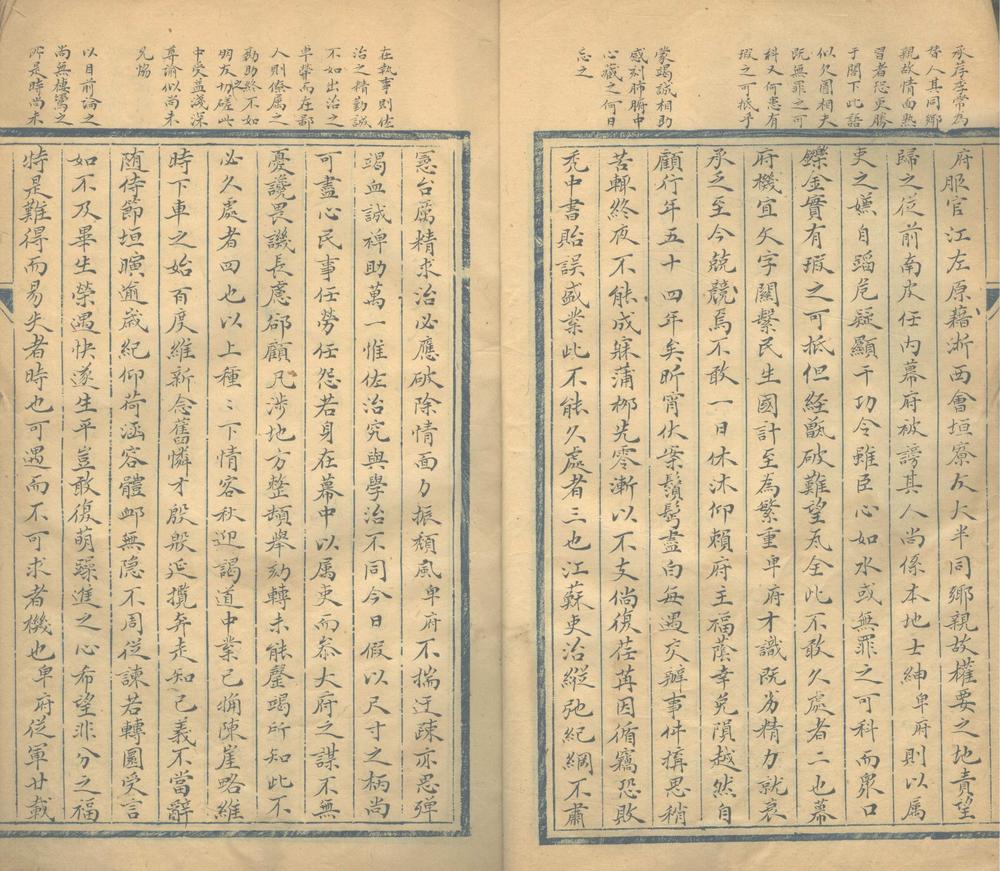 承荐李常為
昝人其同鄉
親故情面熟
習者恐更勝
于閣下此語
似欠圓相夫
既無罪之可
科又何患有
瑕之可抵乎
蒙竭誠相助
感刻肺腑中
心藏之何日
忘之
府服官江左原藉浙西會垣寮友大半同鄉親故權要之地責望
歸之從前南皮任內幕府被謗其人尚係本地士紳卑府則以属
吏之嫌自蹈危疑顯干功令雖臣心如水或無罪之可科而衆口
鑠金實有瑕之可抵但経甑破難望瓦全此不敢久處者二也幕
府機宜文字關繫民生國計至為繁重卑府才識既劣精力就衰
承乏至今兢兢焉不敢一日休沐仰賴府主福蔭幸免隕越然自
顧行年五十四年矣昕宵伏案鬚鬢盡白每遇交辦事件搆思稍
苦輒終夜不能成寐蒲栁先零漸以不支倘復荏苒因循竊恐敗
禿中書貽誤盛業此不能久處者三也江蘇吏治縱弛紀綱不肅
在執事則佐
治之精勤誠
不如出治之
卑榮而在鄙
人則僚属之
勷助終不如
朋友之切磋此
中受益淺深
尊諭似尚未
允愜
以目前論之
尚無棲鸞之
所是時尚未
憲台厲精求治必應破除情面力振頹風卑府不揣迂疎亦思殫
竭血誠裨助萬一惟佐治究與學治不同今日假以尺寸之柄尚
可盡心民事任勞任怨若身在幕中以属吏而叅大府之謀不無
憂讒畏譏長慮郤顧凡涉地方整頓舉劾轉未能罄竭所知此不
必久處者四也以上種〻下情客秋迎謁道中業已捅陳崖略維
時下車之始百度維新念舊憐才殷殷延攬奔走知己義不當辭
随侍節垣瞚逾歲紀仰荷涵容體卹無隠不周從諫若轉圜受言
如不及畢生榮遇快遂生平豈敢復萌躁進之心希望非分之福
特是難得而易失者時也可遇而不可求者機也卑府従軍廿載